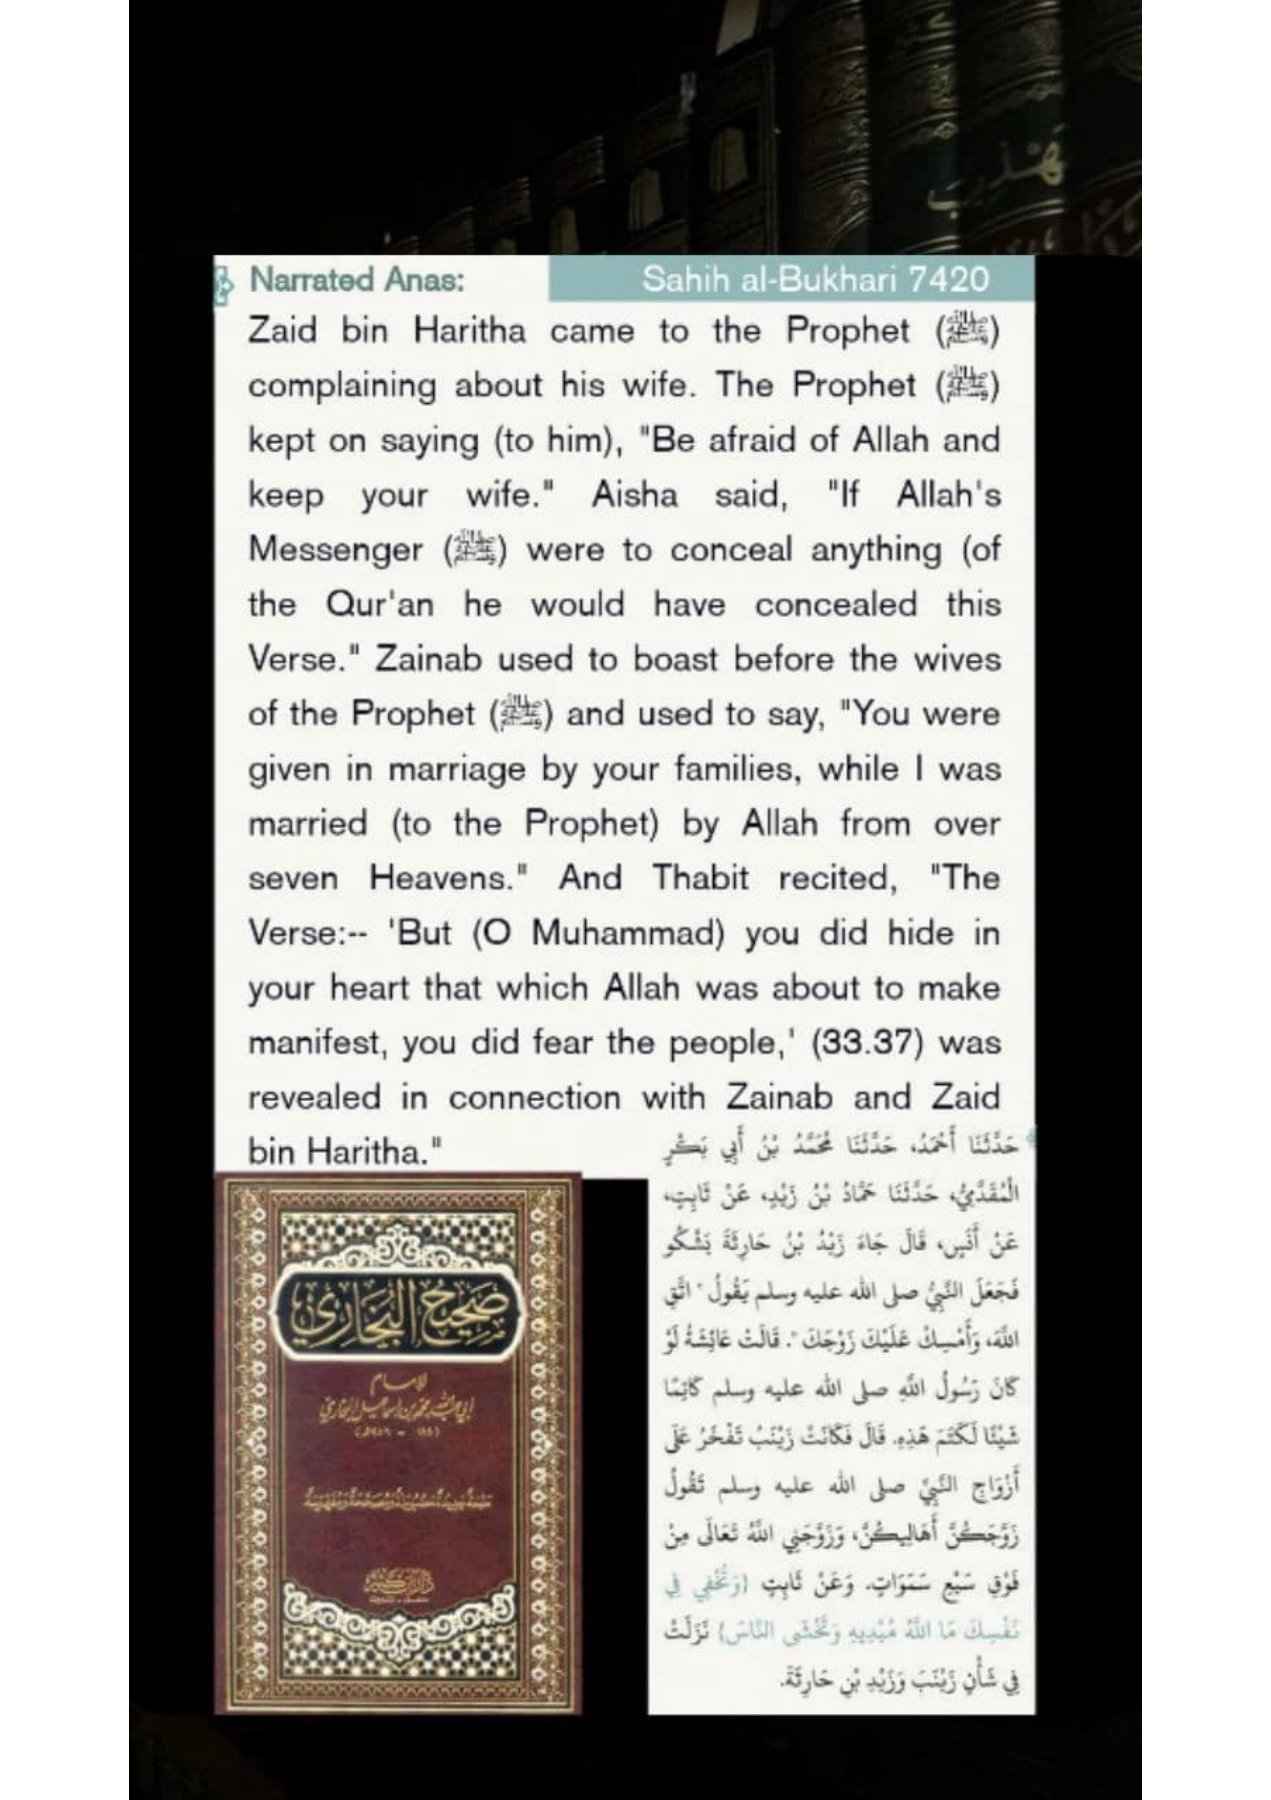 تهذيب
Narrated Anas: Sahih al-Bukhari 7420
Zaid bin Haritha came to the Prophet (ﷺ)
complaining about his wife. The Prophet (ﷺ)
kept on saying (to him), "Be afraid of Allah and
keep your wife." Aisha said, "If Allah's
Messenger (ﷺ) were to conceal anything (of
the Qur'an he would have concealed this
Verse." Zainab used to boast before the wives
of the Prophet (ﷺ) and used to say, "You were
given in marriage by your families, while I was
married (to the Prophet) by Allah from over
seven Heavens." And Thabit recited, "The
Verse:-- 'But (O Muhammad) you did hide in
your heart that which Allah was about to make
manifest, you did fear the people,' (33.37) was
revealed in connection with Zainab and Zaid
bin Haritha."
حَدَّثَنَا أَحْمَدُ، حَدَّثَنَا مُحَمَّدُ بْنُ أَبِي بَكْرٍ
الْمُقَدَّمِيُّ، حَدَّثَنَا حَمَّادُ بْنُ زَيْدٍ، عَنْ ثَابِتٍ،
عَنْ أَنَسٍ، قَالَ جَاءَ زَيْدُ بْنُ حَارِثَةَ يَشْكُو
فَجَعَلَ النَّبِيُّ صلى الله عليه وسلم يَقُولُ " اتَّقِ
اللَّهَ، وَأَمْسِكْ عَلَيْكَ زَوْجَكَ ". قَالَتْ عَائِشَةُ لَوْ
كَانَ رَسُولُ اللَّهِ صلى الله عليه وسلم كَاتِمًا
شَيْئًا لَكَتَمَ هَذِهِ. قَالَ فَكَانَتْ زَيْنَبُ تَفْخَرُ عَلَى
أَزْوَاجِ النَّبِيِّ صلى الله عليه وسلم تَقُولُ
زَوَّجَكُنَّ أَهَالِيكُنَّ، وَزَوَّجَنِي اللَّهُ تَعَالَى مِنْ
فَوْقِ سَبْعِ سَمَوَاتٍ. وَعَنْ ثَابِتٍ {وَتُخْفِي فِي
نَفْسِكَ مَا اللَّهُ مُبْدِيهِ وَتَخْشَى النَّاسَ} نَزَلَتْ
فِي شَأْنِ زَيْنَبَ وَزَيْدِ بْنِ حَارِثَةَ.
صَحِيحُ البُخَارِيّ
للإمام
أبي عبد الله محمد بن إسماعيل البخاري
دار ابن كثير